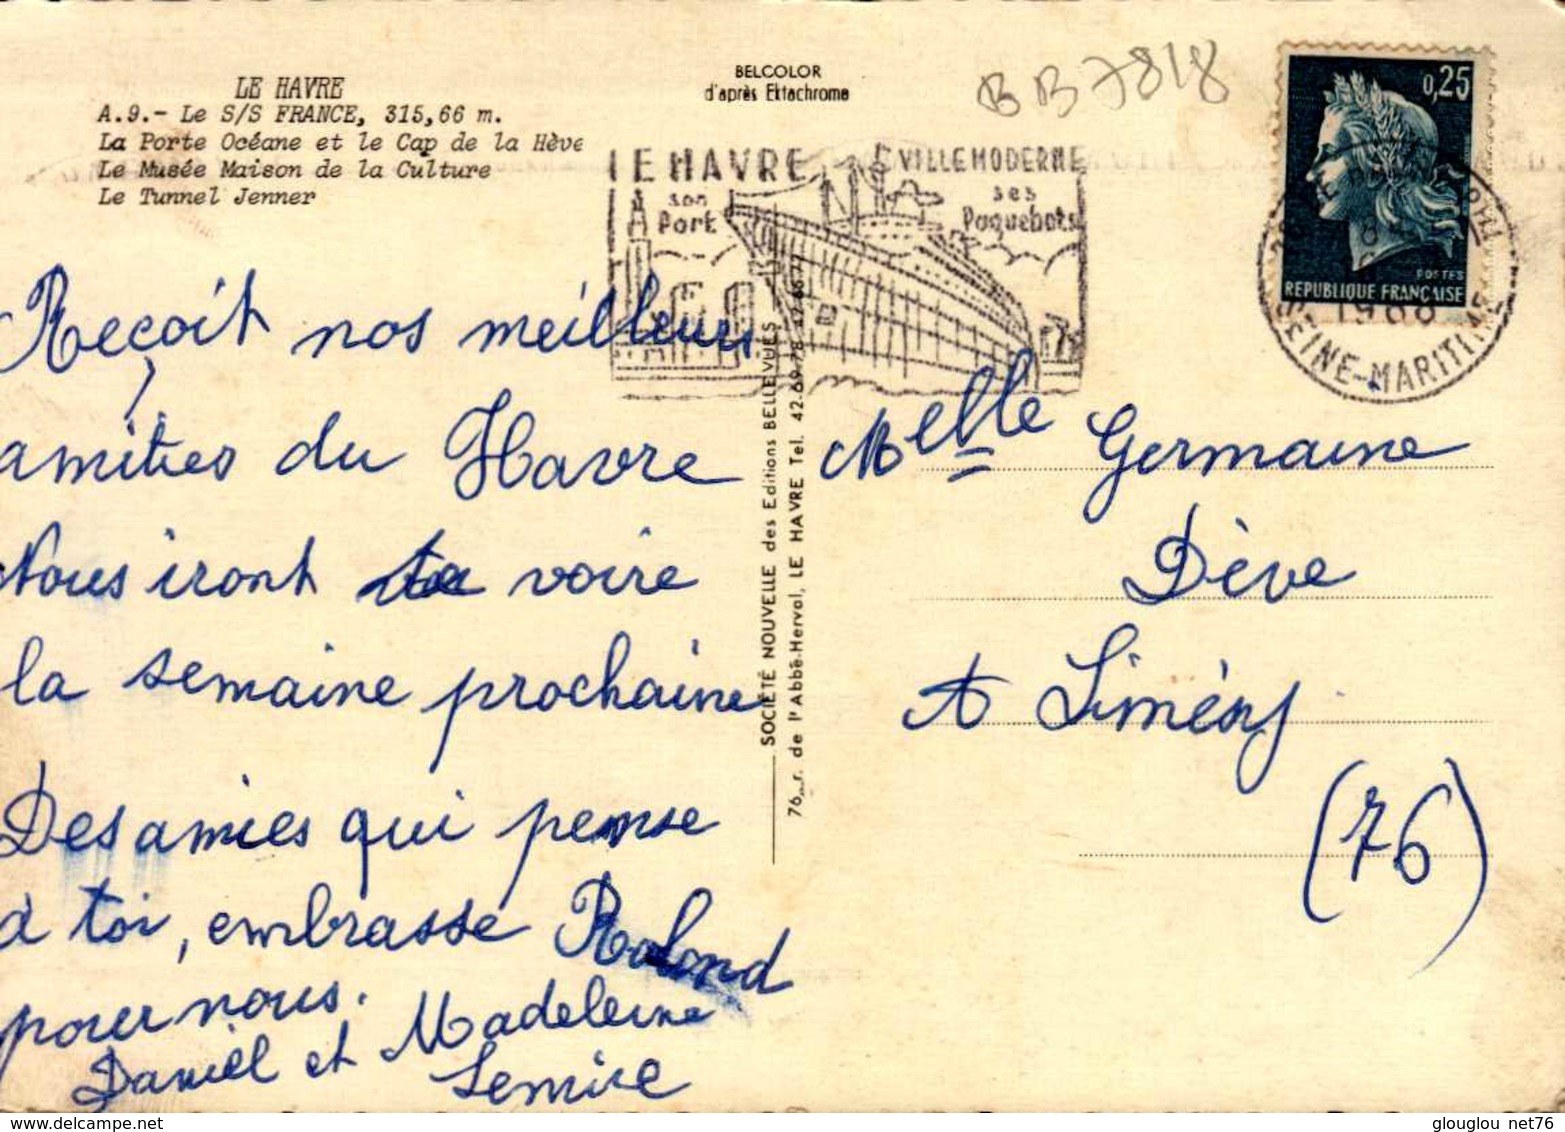 LE HAVRE
A.9.- Le S/S FRANCE, 315,66 m.
La Porte Océane et le Cap de la Hève
Le Musée Maison de la Culture
Le Tunnel Jenner
BELCOLOR
d'après Ektachrome
BB7818
LE HAVRE
son
Port
VILLE MODERNE
ses
Paquebots
0,25
POSTES
REPUBLIQUE FRANÇAISE
1968
SEINE-MARITIME
Reçoit nos meilleurs
amitiés du Havre
Nous iront te voire
la semaine prochaine
Des amies qui pense
à toi, embrasse Roland
pour nous.
Daniel et Madeleine
Lemire
SOCIÉTÉ NOUVELLE des Editions BELLEVUES
76, r. de l'Abbé-Herval, LE HAVRE Tel. 42-69-78
Melle Germaine
Dève
A Limésy
(76)
glouglou net76